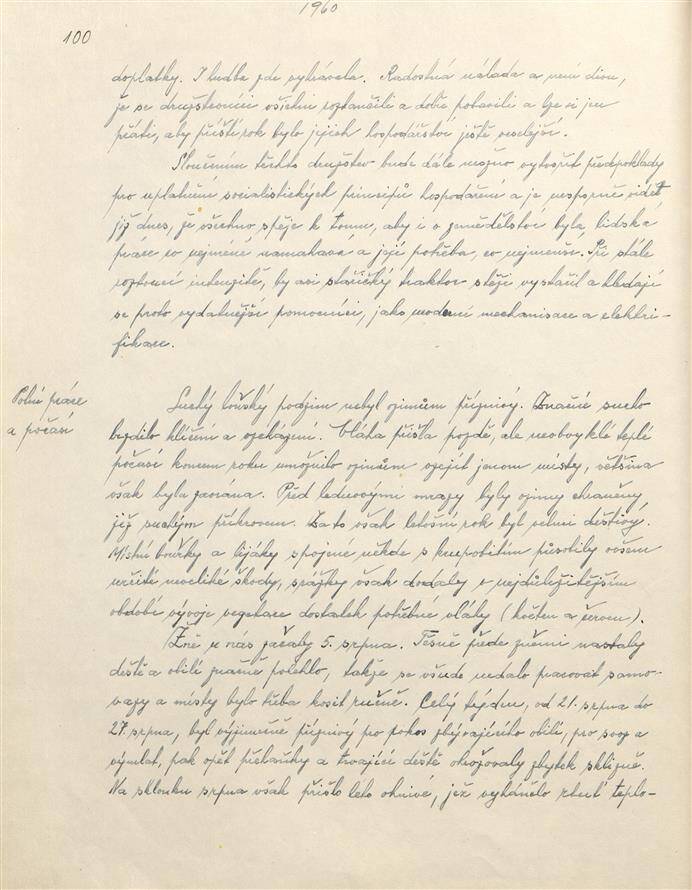 1960
100
doplatky. I hudba zde vyhrávala. Radostná nálada a není divu,
že se družstevníci všichni roztančili a dobře pobavili a lze si jen
přáti, aby příští rok bylo jejich hospodářství ještě veselejší.
Sloučením těchto družstev bude dále možno vytvořit předpoklady
pro uplatnění socialistických principů hospodaření a je nesporně vidět
již dnes, že všechno spěje k tomu, aby i v zemědělství byla lidská
práce co nejméně namahavá a její potřeba, co nejmenší. Při stále
rostoucí intenzitě, by asi stařičký traktor stěží vystačil a hledají
se proto vydatnější pomocníci, jako moderní mechanisace a elektri-
fikace.
Polní práce
a počasí
Suchý loňský podzim nebyl ozimům příznivý. Značné sucho
brzdilo klíčení a vzcházení. Vláha přišla pozdě, ale neobvyklé teplé
počasí koncem roku umožnilo ozimům vzejít jenom místy, většina
však byla zaorána. Před lednovými mrazy byly ozimy chráněny
již suchým příkrovem. Za to však letošní rok byl velmi deštivý.
Místní bouřky a lijáky spojené někde s krupobitím působily ovšem
určité nevelké škody, srážky však dodaly v nejdůležitějším
období vývoje vegetace dostatek potřebné vláhy (květen a červen).
Žně u nás začaly 5. srpna. Těsně přede žněmi nastaly
deště a obilí značně polehlo, takže se všude nedalo pracovat samo-
vazy a místy bylo třeba kosit ručně. Celý týden, od 21. srpna do
27. srpna, byl výjimečně příznivý pro pokos zbývajícího obilí, pro svoz a
výmlat, pak opět přeháňky a trvající deště ohrožovaly zbytek sklizně.
Na sklonku srpna však přišlo léto ohnivé, jež vyhánělo rtuť teplo-